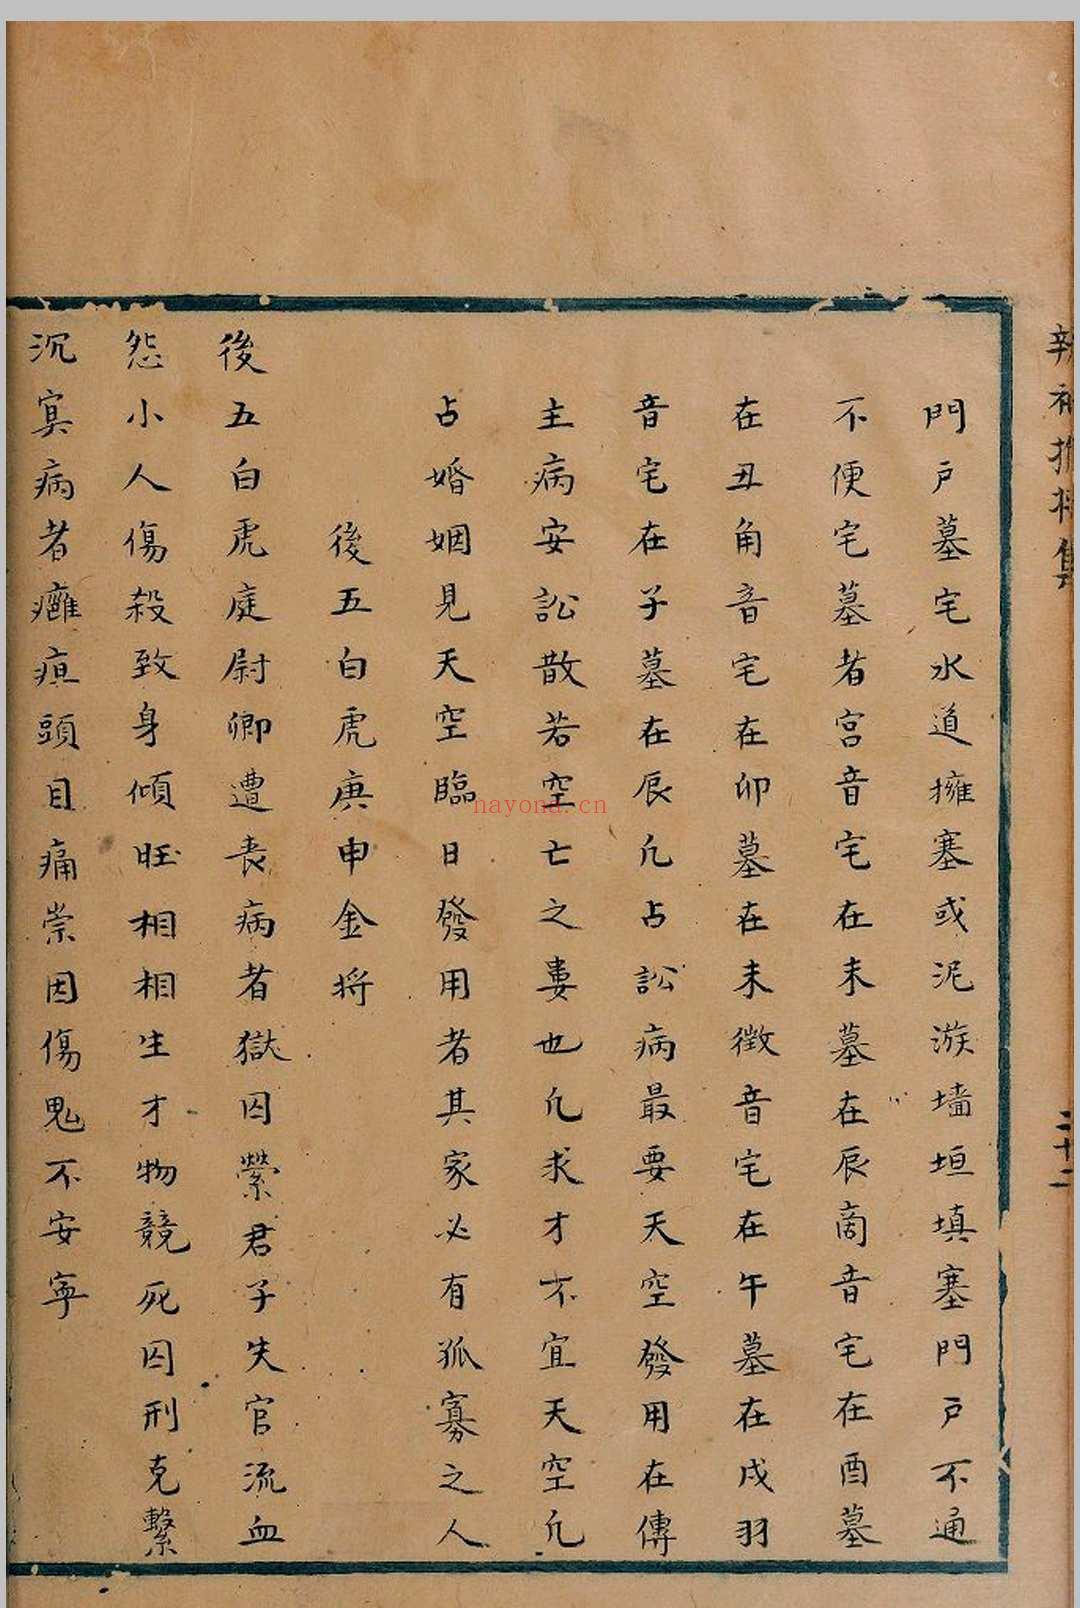 門戸墓宅水道擁塞或泥淤墻垣填塞門戸不通
不便宅墓者宮音宅在未墓在辰商音宅在酉墓
在丑角音宅在卯墓在未徵音宅在午墓在戌羽
音宅在子墓在辰凢占訟病最要天空發用在傳
主病安訟散若空亡之婁也凢求才不宜天空凢
占婚姻見天空臨日發用者其家必有孤寡之人
後五白虎庚申金将
後五白虎庭尉卿遭丧病者獄囚縈君子失官流血
怨小人傷殺致身傾旺相相生才物競死囚刑克繫
沉寘病者癰疸頭目痛祟因傷鬼不安寧
集
二十二
nayona.cn